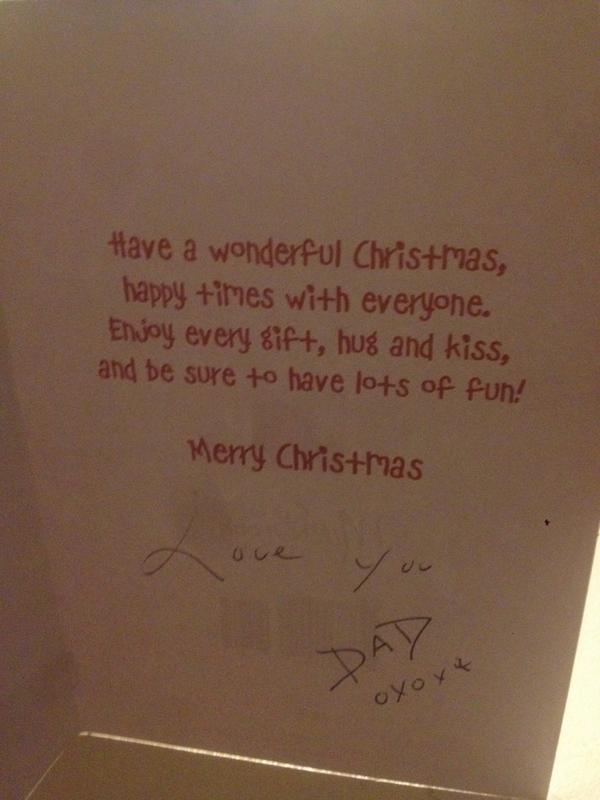 Have a wonderful Christmas,
happy times with everyone.
Enjoy every gift, hug and kiss,
and be sure to have lots of fun!
Merry Christmas
Love you
DAD
oxoxx